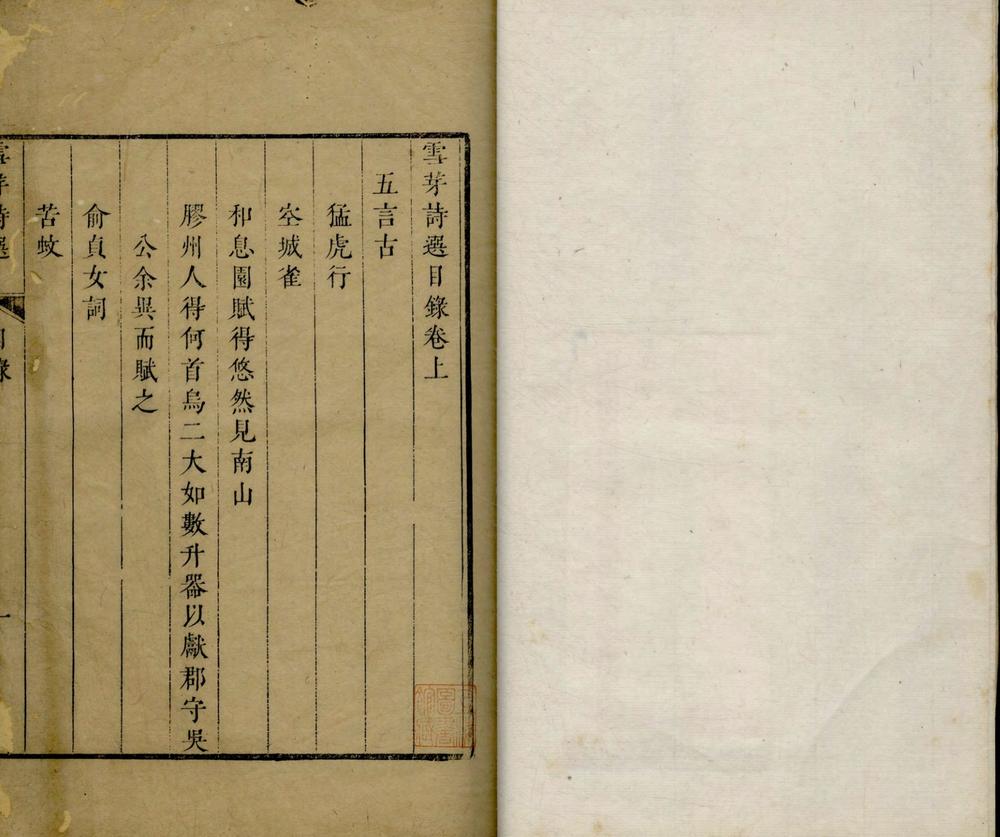 雪芽詩選目錄卷上
五言古
猛虎行
空城雀
和息園賦得悠然見南山
膠州人得何首烏二大如數升器以獻郡守吳
公余異而賦之
俞貞女詞
苦蚊
雪芽詩選 目錄 一